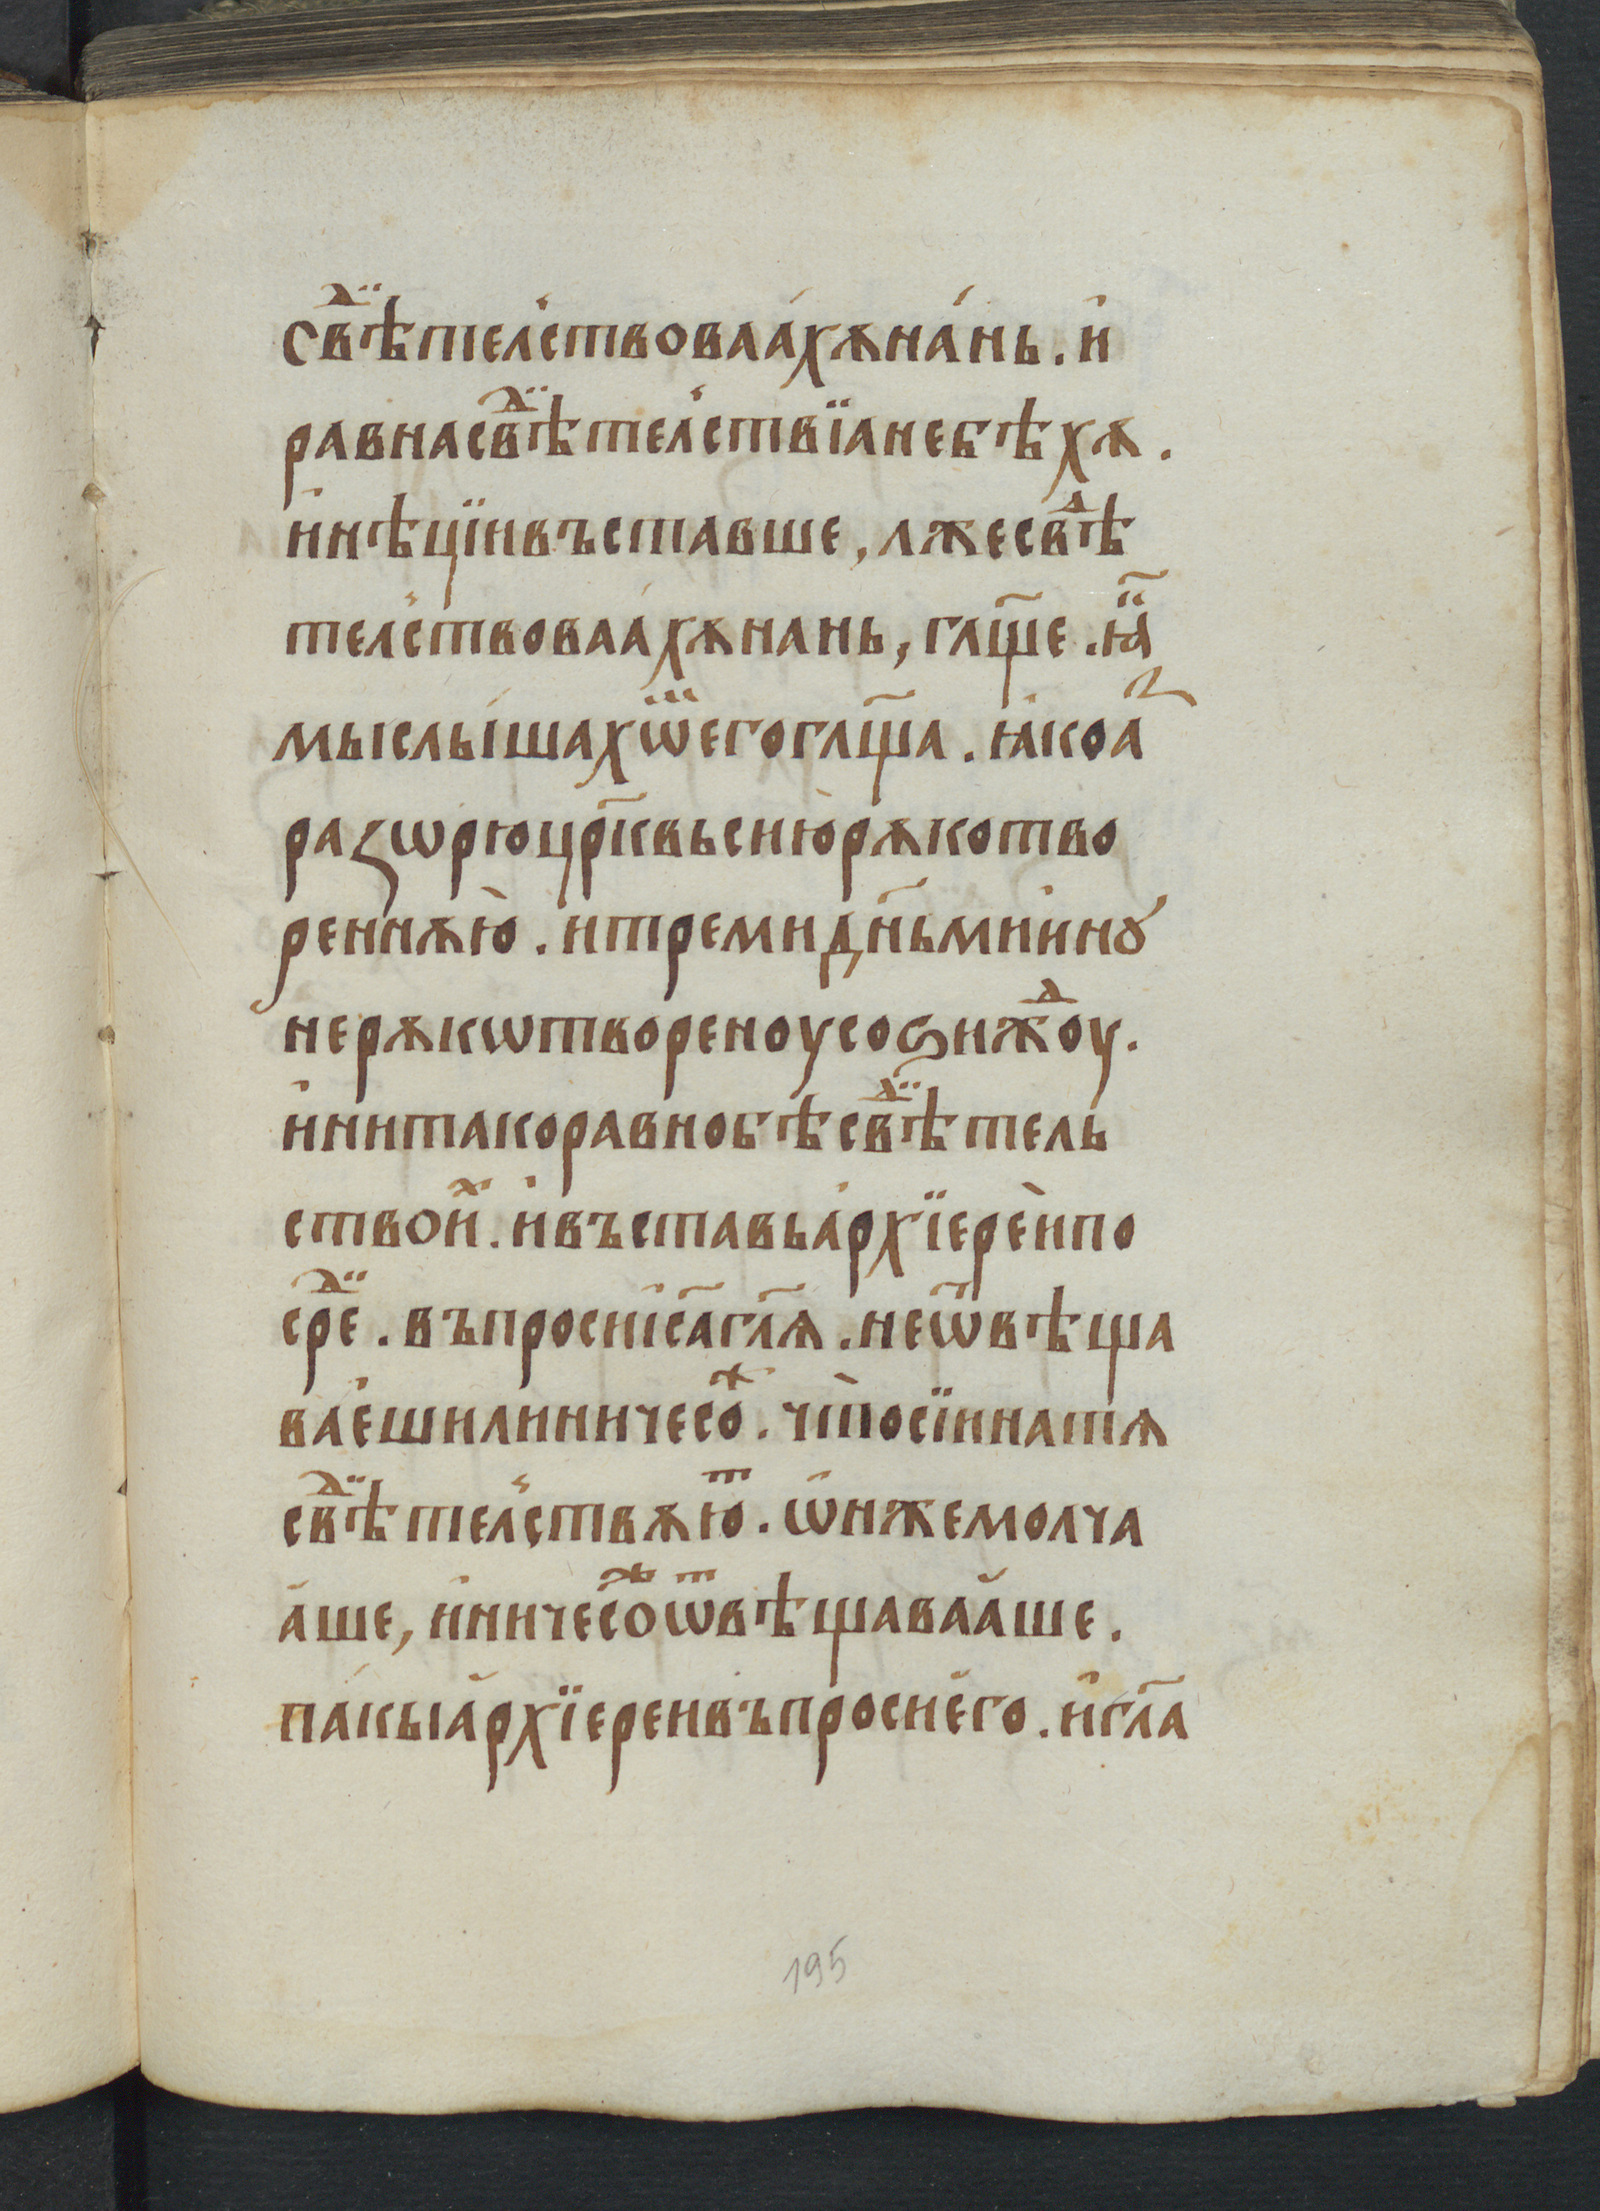 свⷣѣтел҆ствоваа́хѫна́нь. и҆
равнасвⷣѣтел҆ствїанебѣхѫ.
и҆нѣцїивъставше, лжесвⷣѣ
тел҆ствоваа́хѫнань, гл҃ще. ꙗ҆҃
мыслы́шахѿегогл҃ща. ꙗ҆коаⷥ
разѡрюцр҃квьсиюрѫкотво
реннѫю̀. итремидн҃ьмии҆нꙋ
нерѫкѡтвореноусоѕижⷣоу.
и҆нитакоравнобѣсвⷣѣтель
ствои҆ⷯ. и҆въставьа҆рхїерѐипо
срⷣе. въпросиі҆с҃агл҃ѧ. неѿвѣща
вае҆шилиничесоⷤ. что̀сїинатѧ
свⷣѣтел҆ствѫюⷮ. ѡ҆нжемолча
а҆ше, и҆ничесоⷤѿвѣщаваа҆ше.
па́кыа҆рхїереивъпросие҆го. и҆гл҃а
195